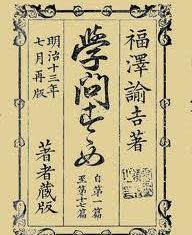 福澤諭吉著
學問のすゝめ
自第一篇
至第十七篇
明治十三年
七月再版
著者藏版